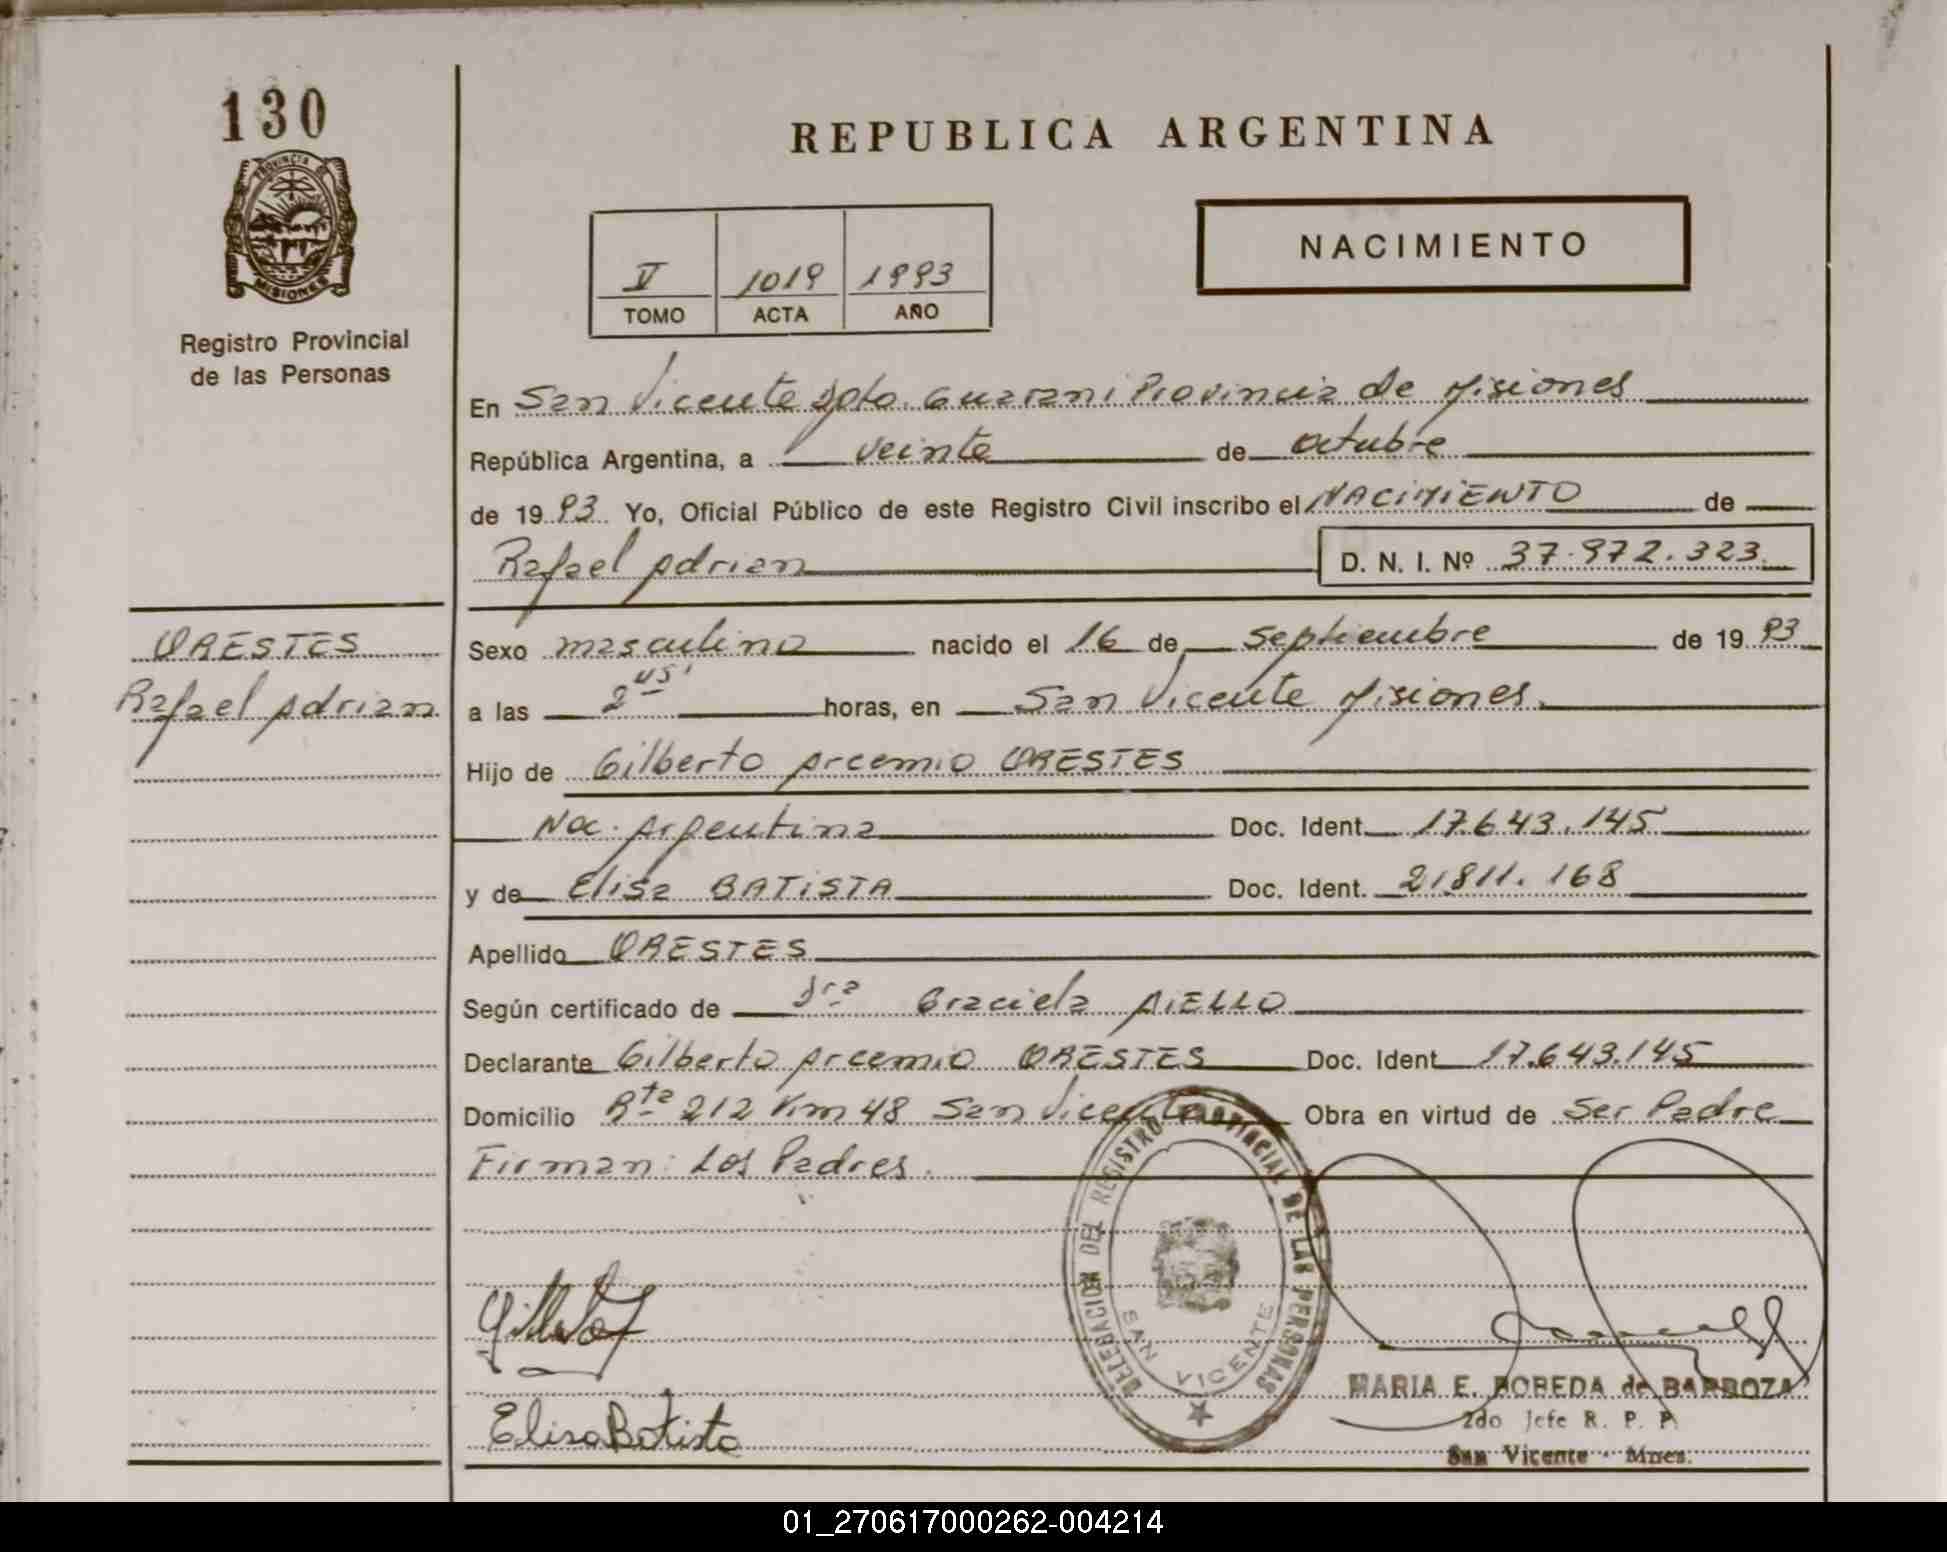 130
PROVINCIA DE
MISIONES
Registro Provincial
de las Personas
REPUBLICA ARGENTINA
V 1019 1993
TOMO ACTA AÑO
NACIMIENTO
En San Vicente Dpto. Guarani Provincia de Misiones
República Argentina, a veinte de octubre
de 1993 Yo, Oficial Público de este Registro Civil inscribo el NACIMIENTO de
Rafael Adrian D. N. I. Nº 37.972.323.
ORESTES
Rafael Adrian
Sexo masculino nacido el 16 de septiembre de 1993
a las 2 45' horas, en San Vicente Misiones.
Hijo de Gilberto Arcemio ORESTES
Nac. Argentina Doc. Ident. 17.643.145
y de Elisa BATISTA Doc. Ident. 21.811.168
Apellido ORESTES
Según certificado de Dra Graciela AIELLO
Declarante Gilberto Arcemio ORESTES Doc. Ident 17.643.145
Domicilio Rta 212 Km 48 San Vicente Obra en virtud de Ser Padre
Firman: Los Padres.
DELEGACION DEL REGISTRO PROVINCIAL DE LAS PERSONAS
SAN VICENTE
Elisa Batista
MARIA E. BOBEDA de BARBOZA
2do Jefe R. P. P.
San Vicente - Mnes.
01_270617000262-004214